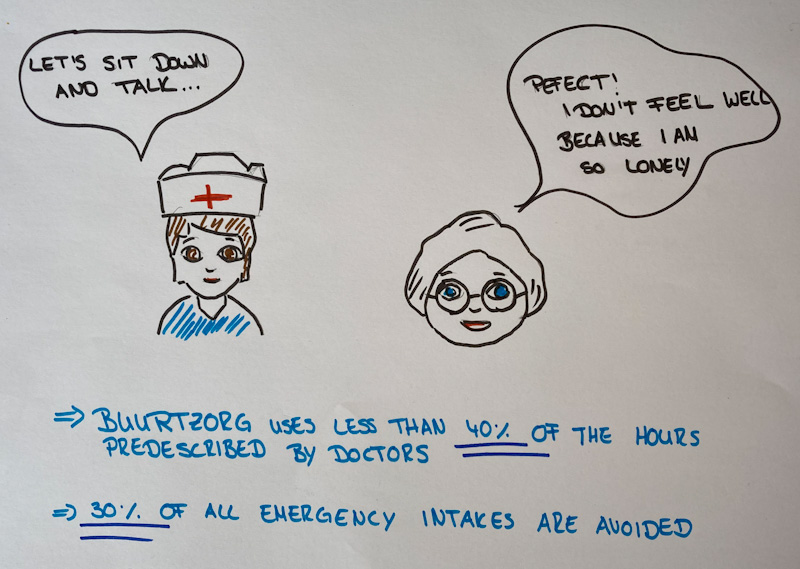 LET'S SIT DOWN
AND TALK...
PEFECT!
I DON'T FEEL WELL
BECAUSE I AM
SO LONELY
⇒ BUURTZORG USES LESS THAN 40% OF THE HOURS
PREDESCRIBED BY DOCTORS
⇒ 30% OF ALL EMERGENCY INTAKES ARE AVOIDED